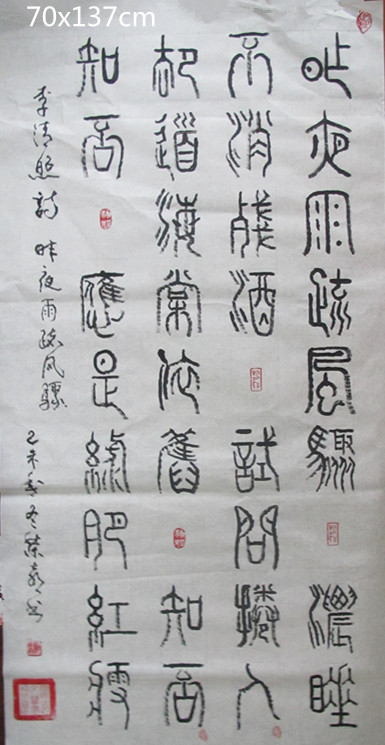 70x137cm
昨夜雨疏風驟 濃睡
不消殘酒 試問捲人
却道海棠依舊 知否
知否 應是綠肥紅瘦
李清照詩 昨夜雨疏风骤 乙未 冬 书